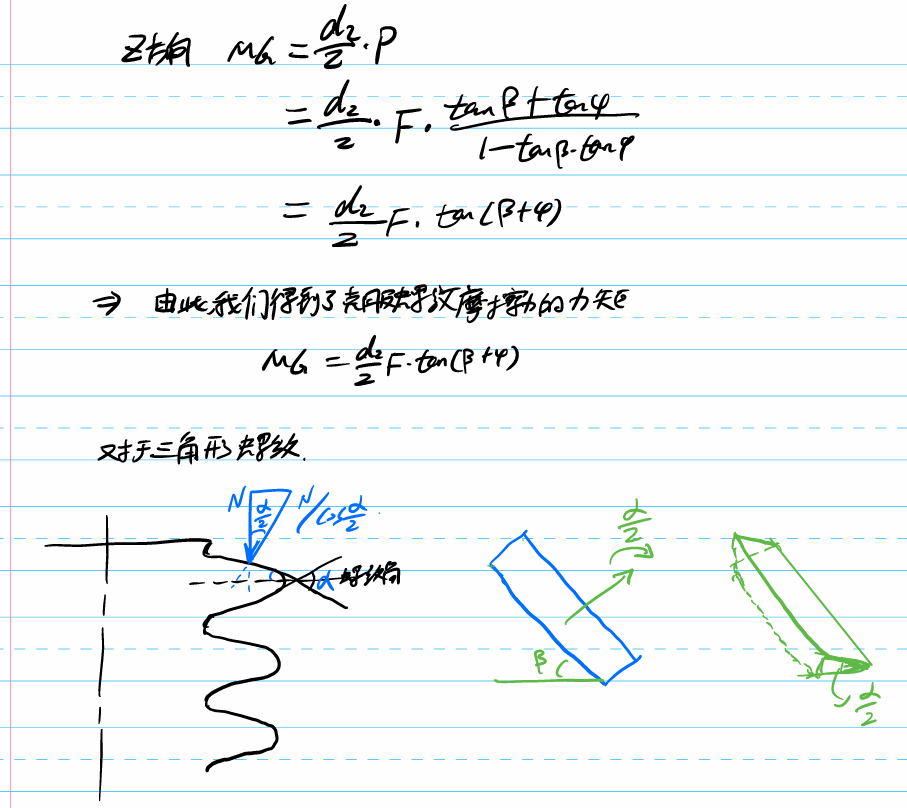 Z方向 MG = d₂/2 · P
= d₂/2 · F · (tanβ + tanφ)/(1 − tanβ·tanφ)
= d₂/2 F · tan(β+φ)
⇒ 由此我们得到了克服螺纹摩擦力的力矩
MG = d₂/2 F · tan(β+φ)
对于三角形螺纹.
N α/2 N/cos α/2
α 螺纹角
β
α/2
α/2